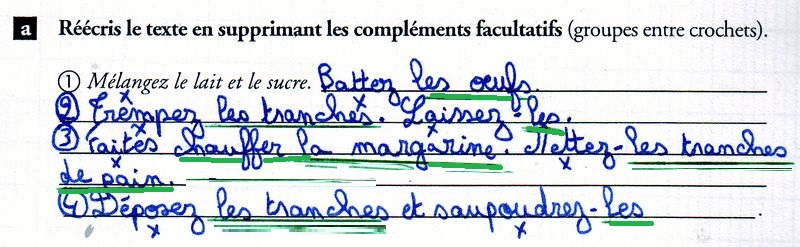 a Réécris le texte en supprimant les compléments facultatifs (groupes entre crochets).
① Mélangez le lait et le sucre. Battez les œufs.
② Trempez les tranches. Laissez-les.
③ Faites chauffer la margarine. Mettez-les tranches
de pain.
④ Déposez les tranches et saupoudrez-les